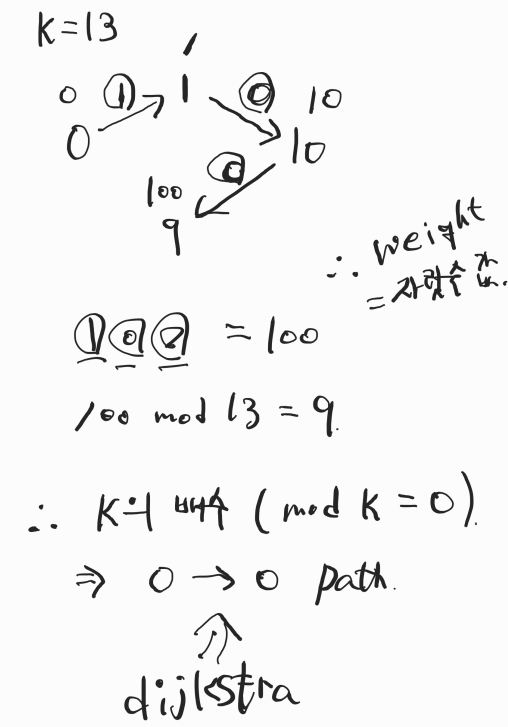 K=13
1
0 ① 1 ⓪ 10
0 10
⓪
100
9
∴ weight
= 자릿수 값.
①⓪⓪ = 100
100 mod 13 = 9.
∴ K의 배수 (mod K = 0).
⇒ 0 → 0 path.
dijkstra